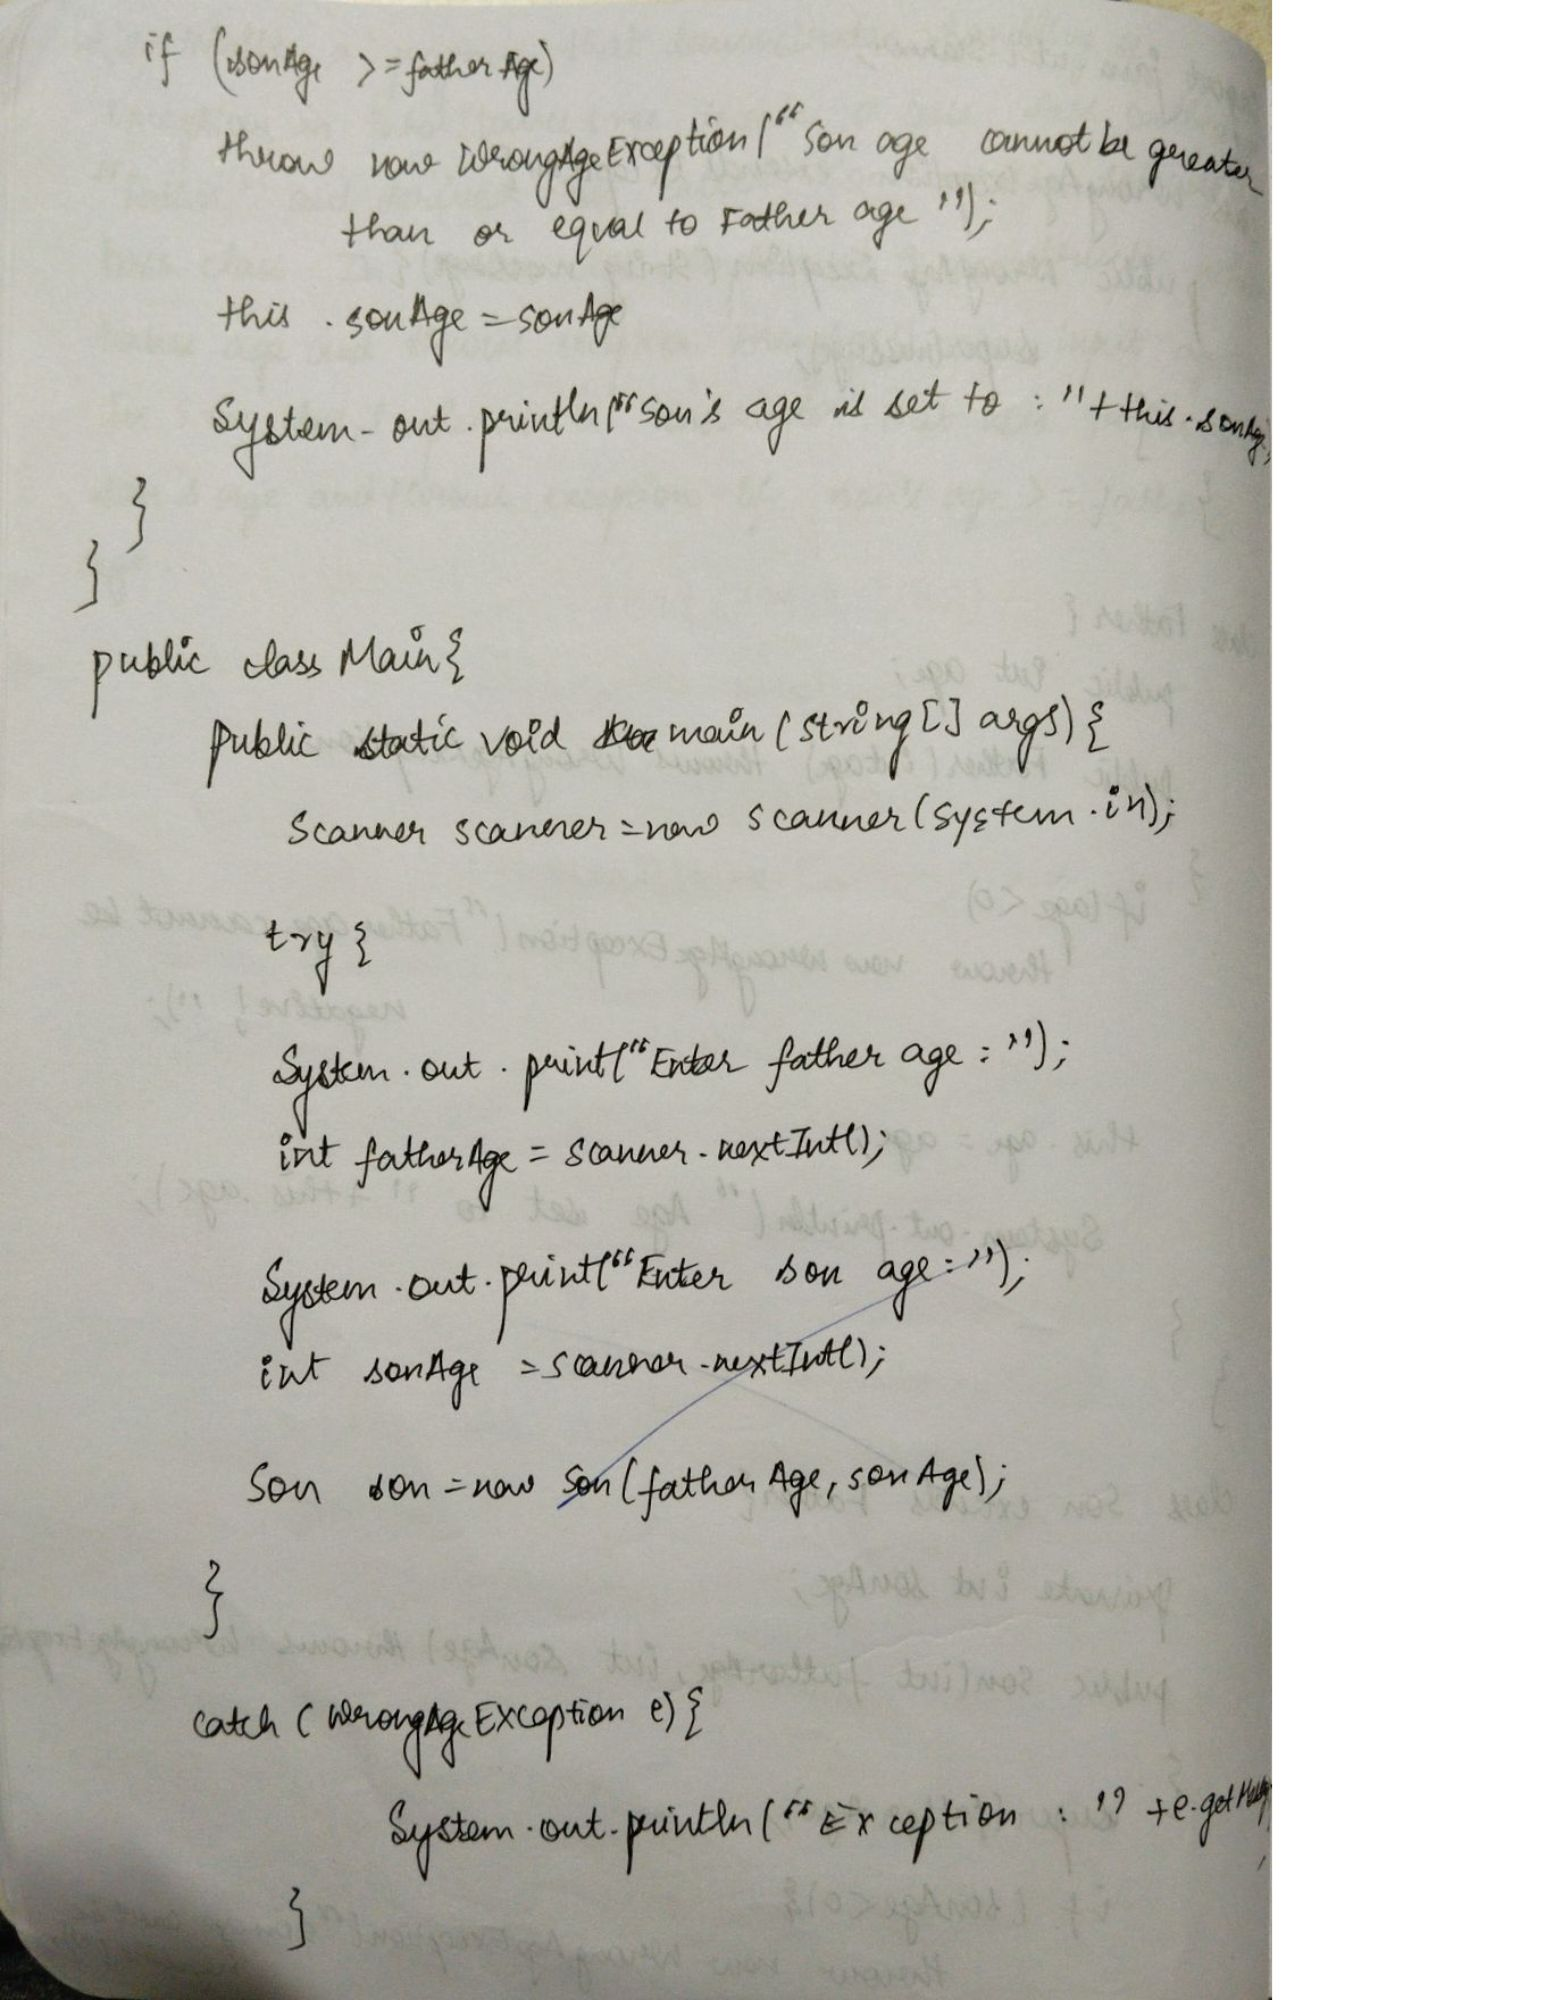 if (sonAge >= fatherAge)
throw new WrongAgeException("Son age cannot be gereater
than or equal to Father age ");
this . sonAge = sonAge
System.out.println("Son's age is set to : " + this.sonAge
}
}
public class Main{
public static void main (string[] args) {
Scanner scanner = new scanner(System.in);
try {
System.out.print("Enter father age : ");
int fatherAge = scanner.nextInt();
System.out.print("Enter son age: ");
int sonAge = scanner.nextInt();
Son son = new Son(fatherAge, sonAge);
}
catch (WrongAgeException e) {
System.out.println("Exception : " + e.
}